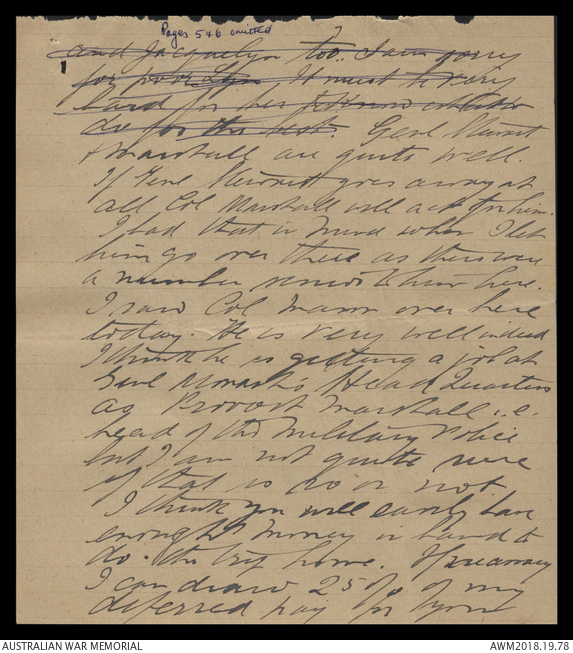 Pages 5 & 6 omitted
7
and Jacquelyn too. I am sorry
for poor Lyn It must be very
hard for her
die for the best. Genl Stewart
& Marshall are quite well.
If Genl Stewart goes away at
all Col Marshall will act for him.
I had that in mind when I let
him go over there as there were
a number senior to him here.
I saw Col Mann over here
today. He is very well indeed
I think he is getting a job at
Genl Monash's Head Quarters
as Provost Marshall i.e.
head of the Military Police
but I am not quite sure
if that is so or not.
I think you will easily have
enough money in hand to
do the trip home. If necessary
I can draw 25% of my
deferred pay for you
AUSTRALIAN WAR MEMORIAL
AWM2018.19.78